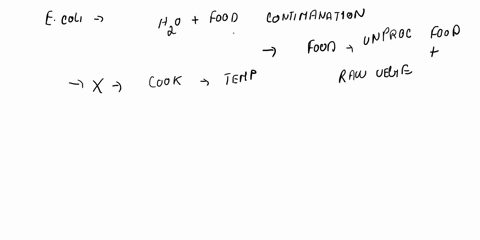 E. coli → H2O + FOOD CONTIMANATION
→ FOOD → UNPROC FOOD
+
RAW VEGIE
→ X → COOK → TEMP